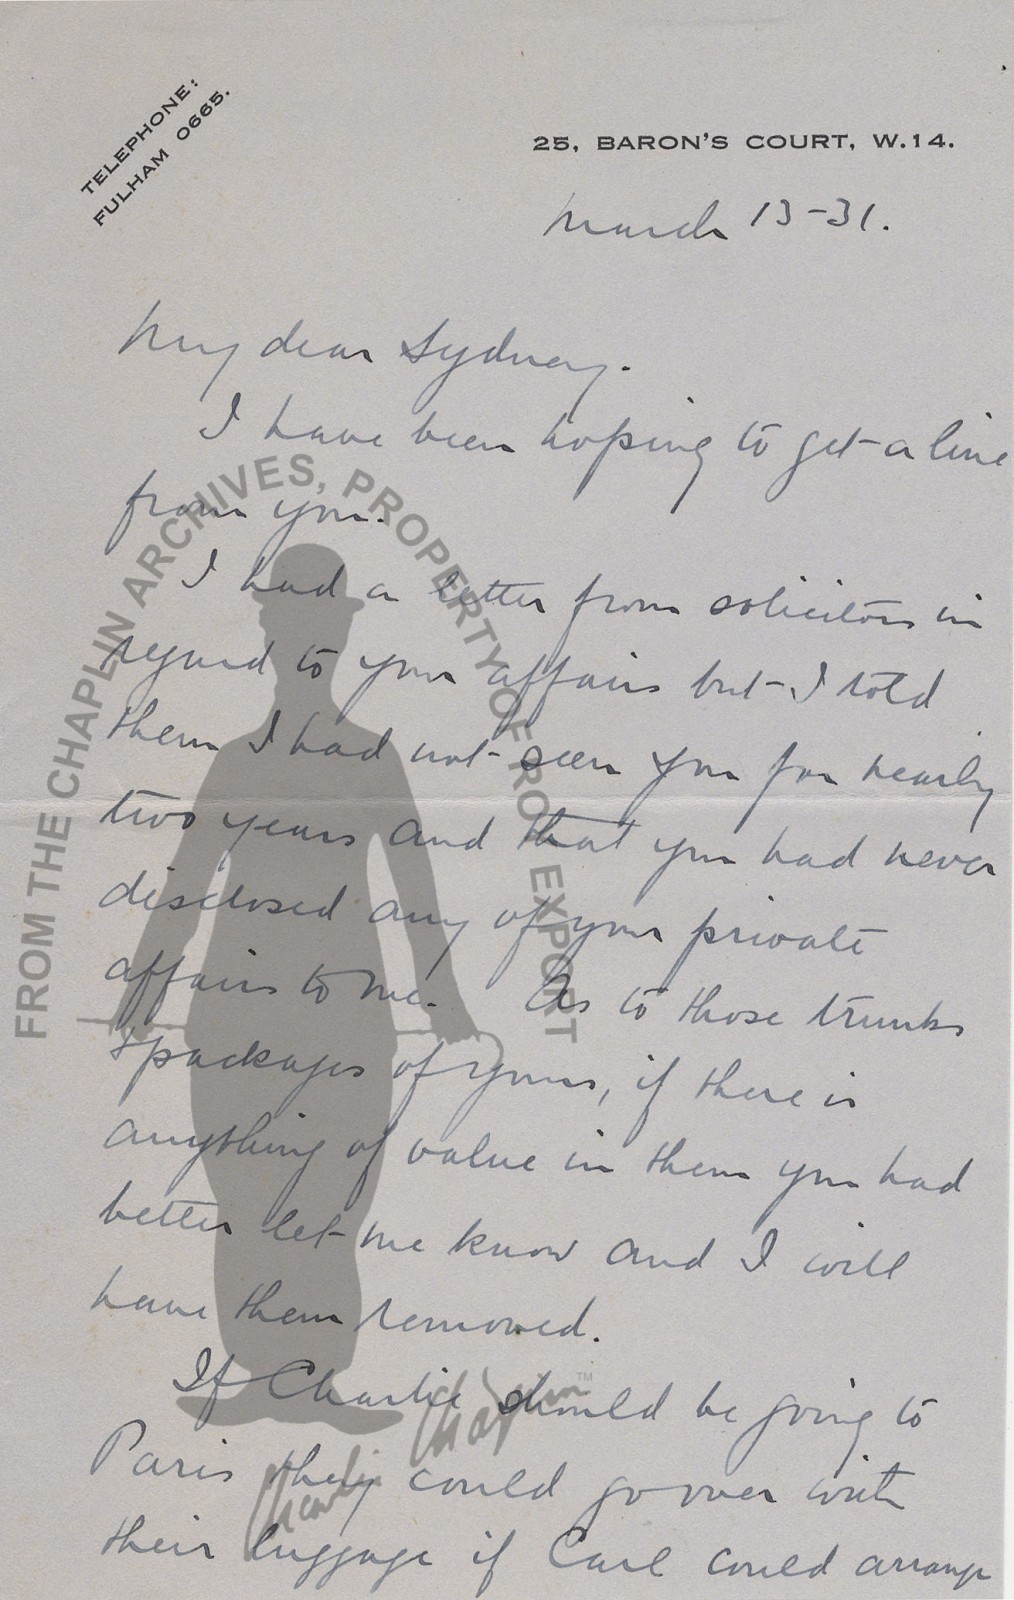 TELEPHONE:
FULHAM 0665.
25, BARON'S COURT, W.14.
March 13-31.
My dear Sydney.
I have been hoping to get a line
from you.
I had a letter from solicitors in
regard to your affairs but I told
them I had not seen you for nearly
two years and that you had never
disclosed any of your private
affairs to me. As to those trunks
& packages of yours, if there is
anything of value in them you had
better let me know and I will
have them removed.
If Charlie should be going to
Paris they could go over with
their luggage if Carl could arrange
FROM THE CHAPLIN ARCHIVES, PROPERTY OF ROY EXPORT
Charlie Chaplin™